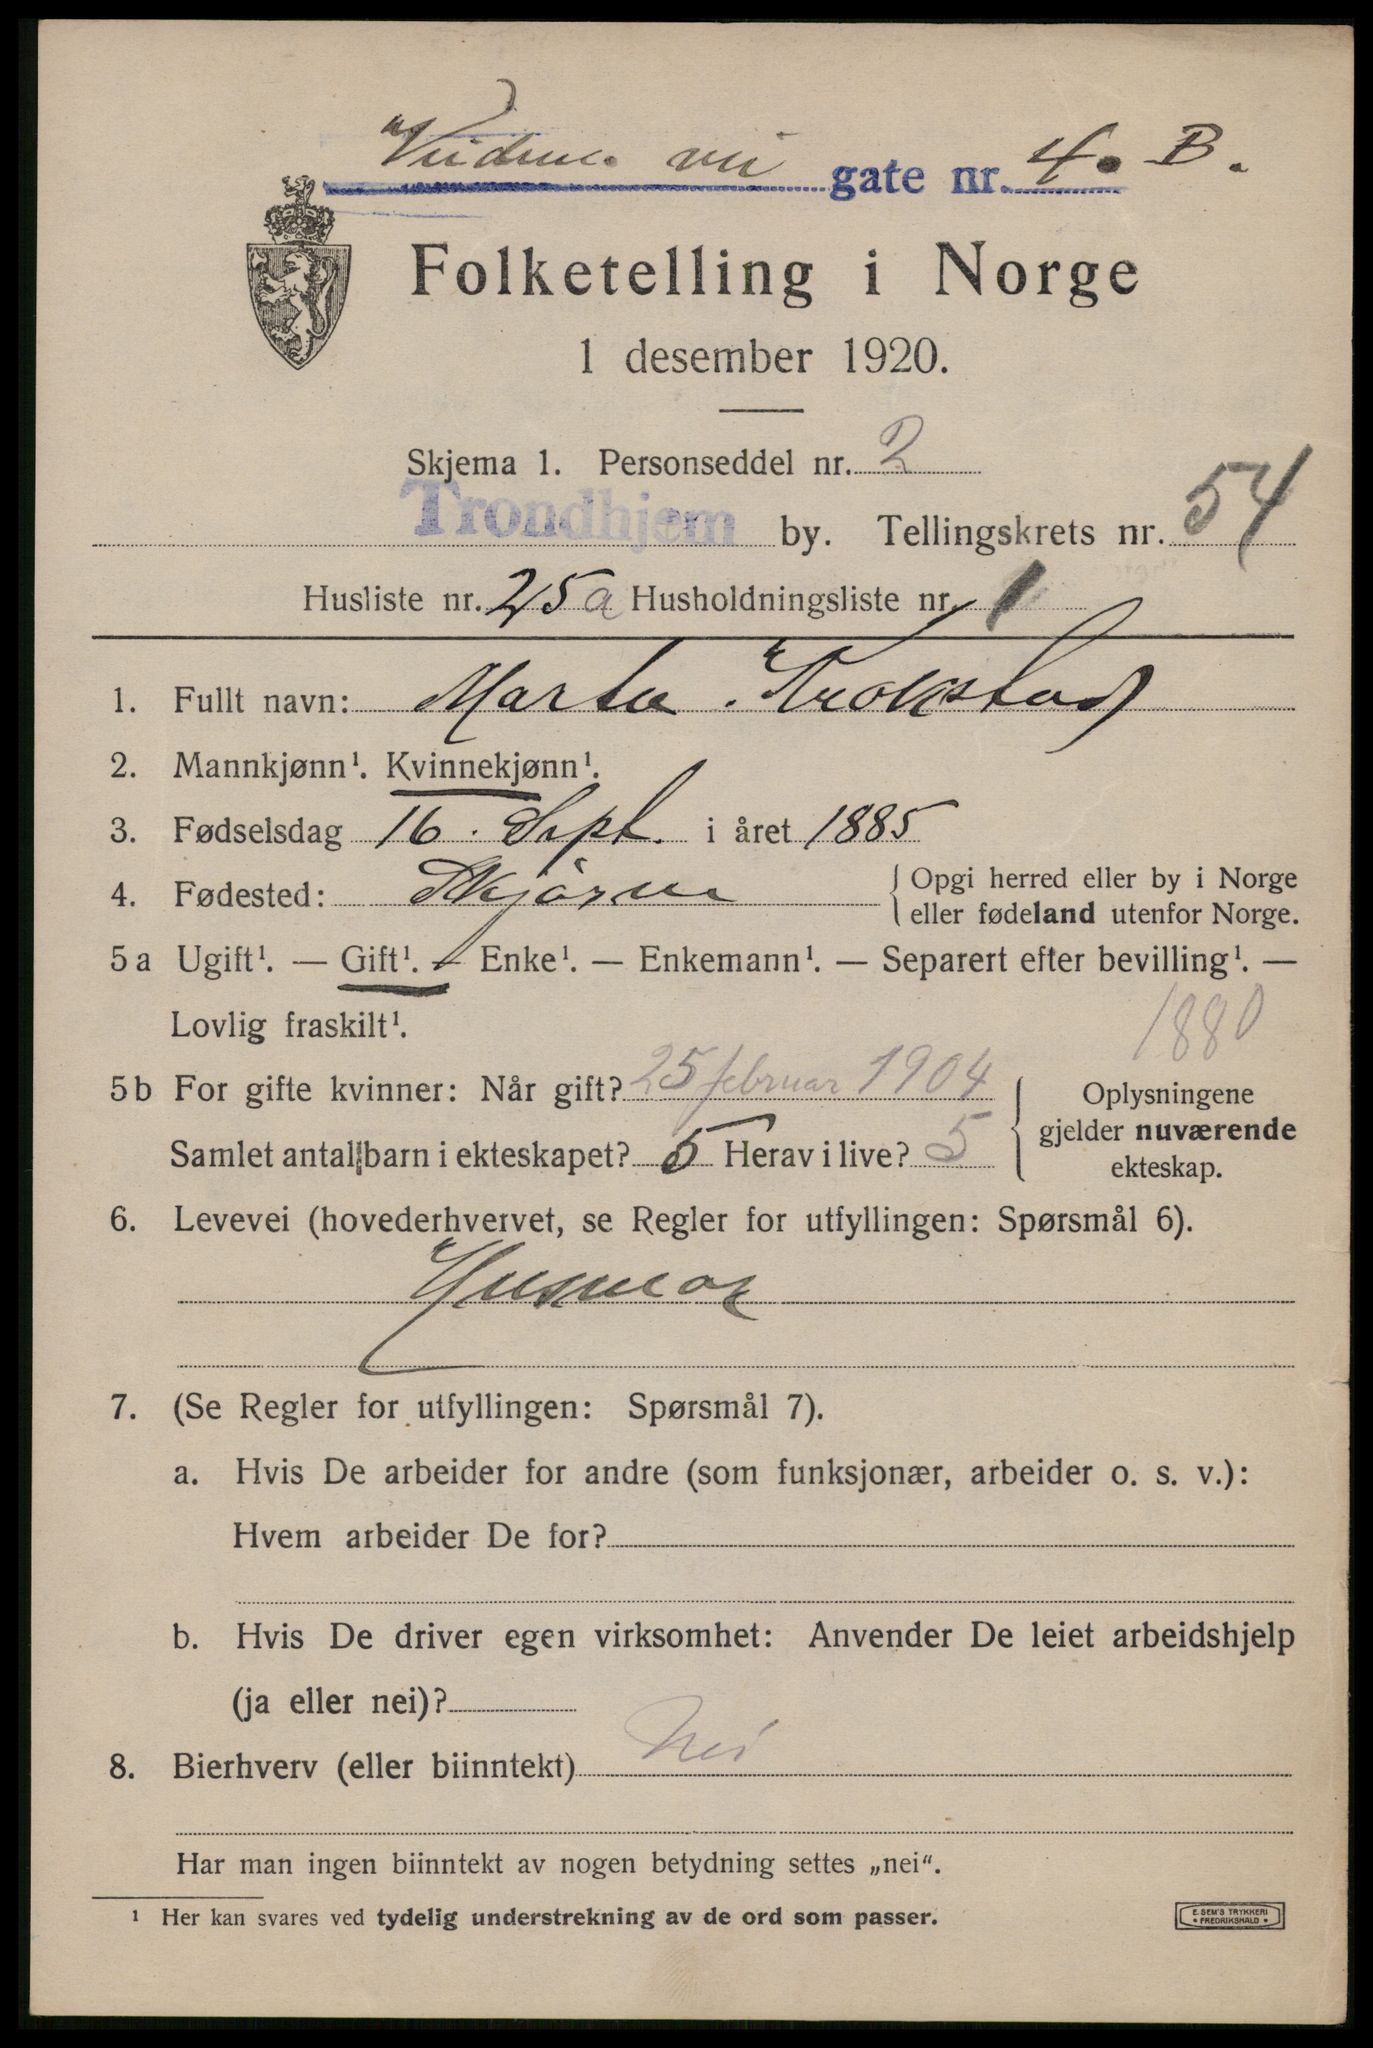 vei gate nr. 4. B.
Folketelling i Norge
1 desember 1920.
Skjema 1. Personseddel nr. 2
Trondhjem by. Tellingskrets nr. 54
Husliste nr. 25 a Husholdningsliste nr. 1
1. Fullt navn: Marta Krokstad
2. Mannkjønn¹. Kvinnekjønn¹.
3. Fødselsdag 16. Sept. i året 1885
4. Fødested: Skjörn { Opgi herred eller by i Norge
eller fødeland utenfor Norge.
5 a Ugift¹. — Gift¹. — Enke¹. — Enkemann¹. — Separert efter bevilling¹. —
Lovlig fraskilt¹.
1880
5 b For gifte kvinner: Når gift? 25 februar 1904
Samlet antal barn i ekteskapet? 5 Herav i live? 5
{ Oplysningene
gjelder nuværende
ekteskap.
6. Levevei (hovederhvervet, se Regler for utfyllingen: Spørsmål 6).
Husmor
7. (Se Regler for utfyllingen: Spørsmål 7).
a. Hvis De arbeider for andre (som funksjonær, arbeider o. s. v.):
Hvem arbeider De for?
b. Hvis De driver egen virksomhet: Anvender De leiet arbeidshjelp
(ja eller nei)?
8. Bierhverv (eller biinntekt) Nei
Har man ingen biinntekt av nogen betydning settes „nei“.
¹ Her kan svares ved tydelig understrekning av de ord som passer.
E. SEM'S TRYKKERI
• FREDRIKSHALD •